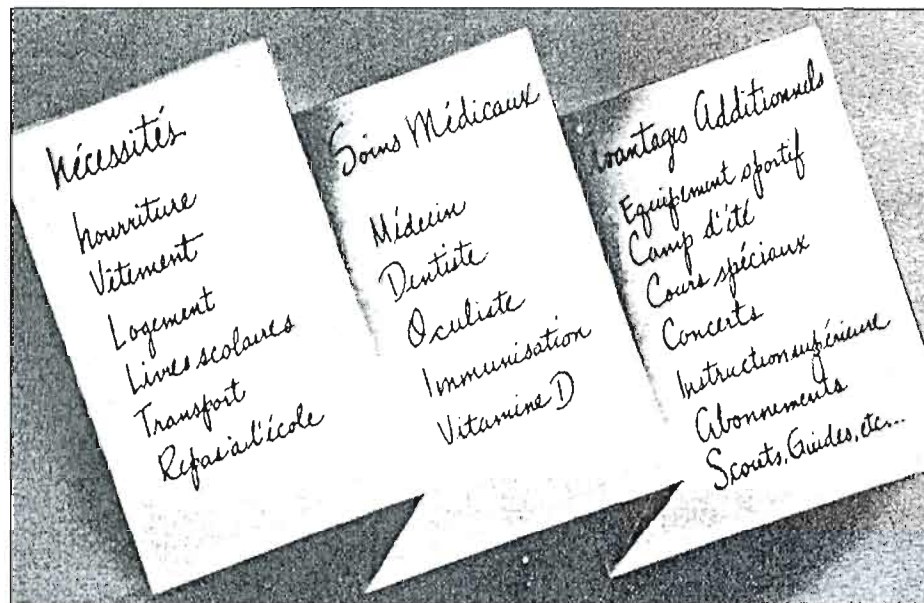 Nécessités
Nourriture
Vêtement
Logement
Livres scolaires
Transport
Repas à l'école
Soins Médicaux
Médecin
Dentiste
Oculiste
Immunisation
Vitamine D
Avantages Additionnels
Equipement sportif
Camp d'été
Cours spéciaux
Concerts
Instruction supérieure
Abonnements
Scouts, Guides, etc...